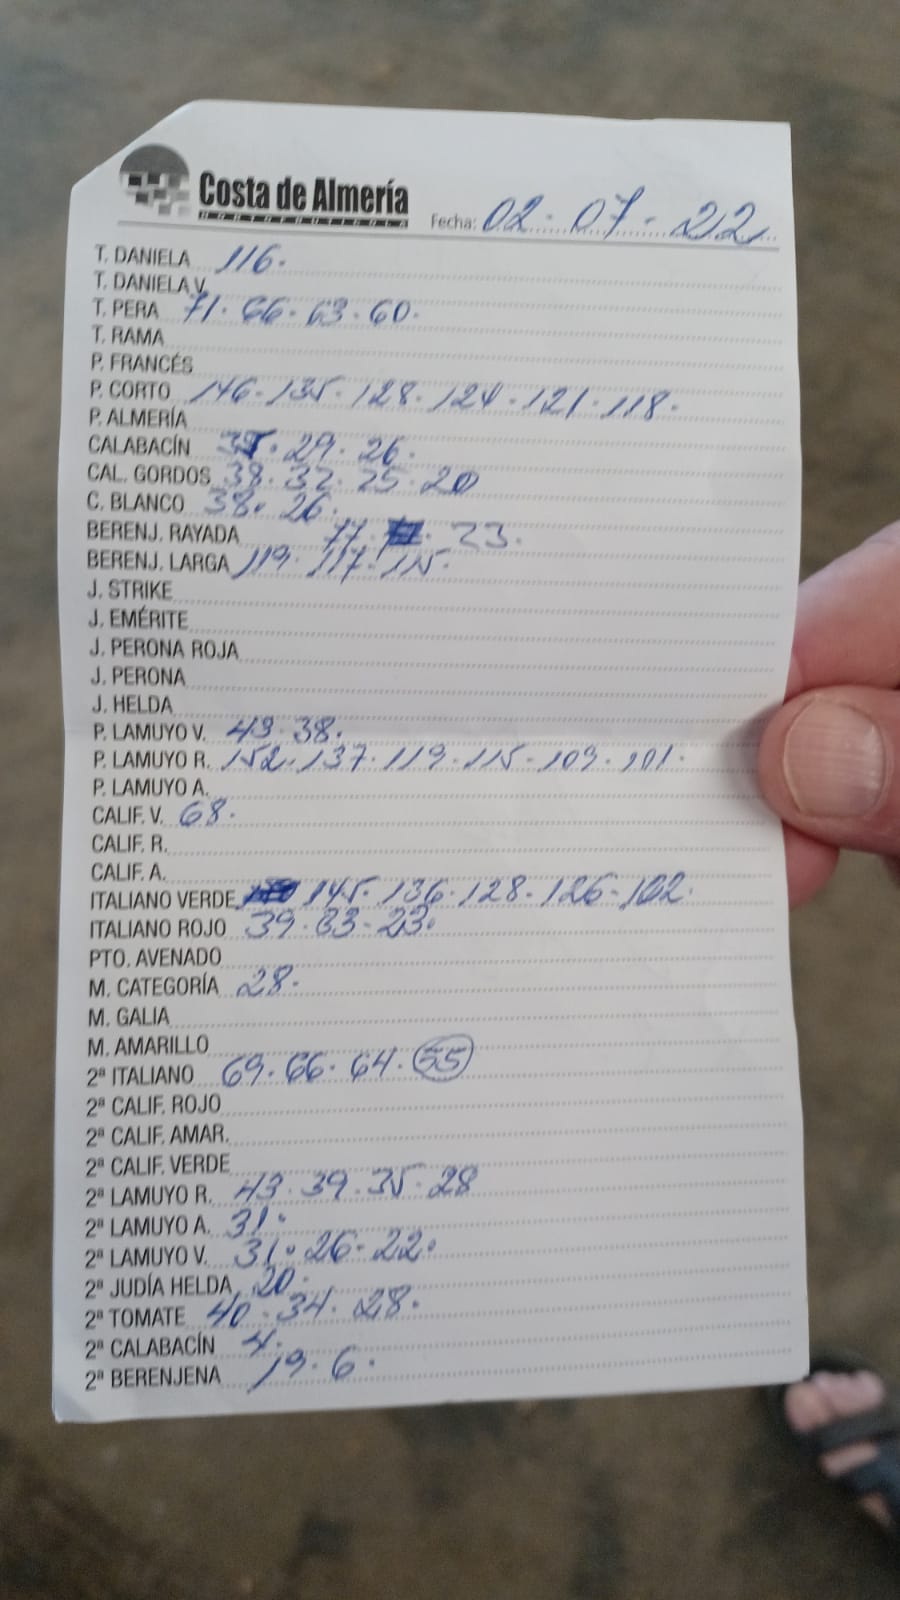 Costa de Almería
HORTOFRUTICOLA
Fecha: 02-07-22
T. DANIELA 116.
T. DANELA V.
T. PERA 71. 66. 63. 60.
T. RAMA
P. FRANCÉS
P. CORTO 146. 135. 128. 124. 121. 118.
P. ALMERÍA
CALABACÍN 29. 26.
CAL. GORDOS 38. 32. 25. 20
C. BLANCO 38. 26.
BERENJ. RAYADA 23.
BERENJ. LARGA 119. 117. 115.
J. STRIKE
J. EMÉRITE
J. PERONA ROJA
J. PERONA
J. HELDA
P. LAMUYO V. 43. 38.
P. LAMUYO R. 152. 137. 119. 115. 109. 101.
P. LAMUYO A.
CALIF. V. 68.
CALIF. R.
CALIF. A.
ITALIANO VERDE 145. 136. 128. 126.
ITALIANO ROJO 39. 33. 23.
PTO. AVENADO
M. CATEGORÍA 28.
M. GALIA
M. AMARILLO
2ª ITALIANO 69. 66. 64. 55
2ª CALIF. ROJO
2ª CALIF. AMAR.
2ª CALIF. VERDE
2ª LAMUYO R. 43. 39. 35. 28
2ª LAMUYO A. 31.
2ª LAMUYO V. 31. 26. 22.
2ª JUDÍA HELDA 20.
2ª TOMATE 40. 34. 28.
2ª CALABACÍN 4.
2ª BERENJENA 19. 6.